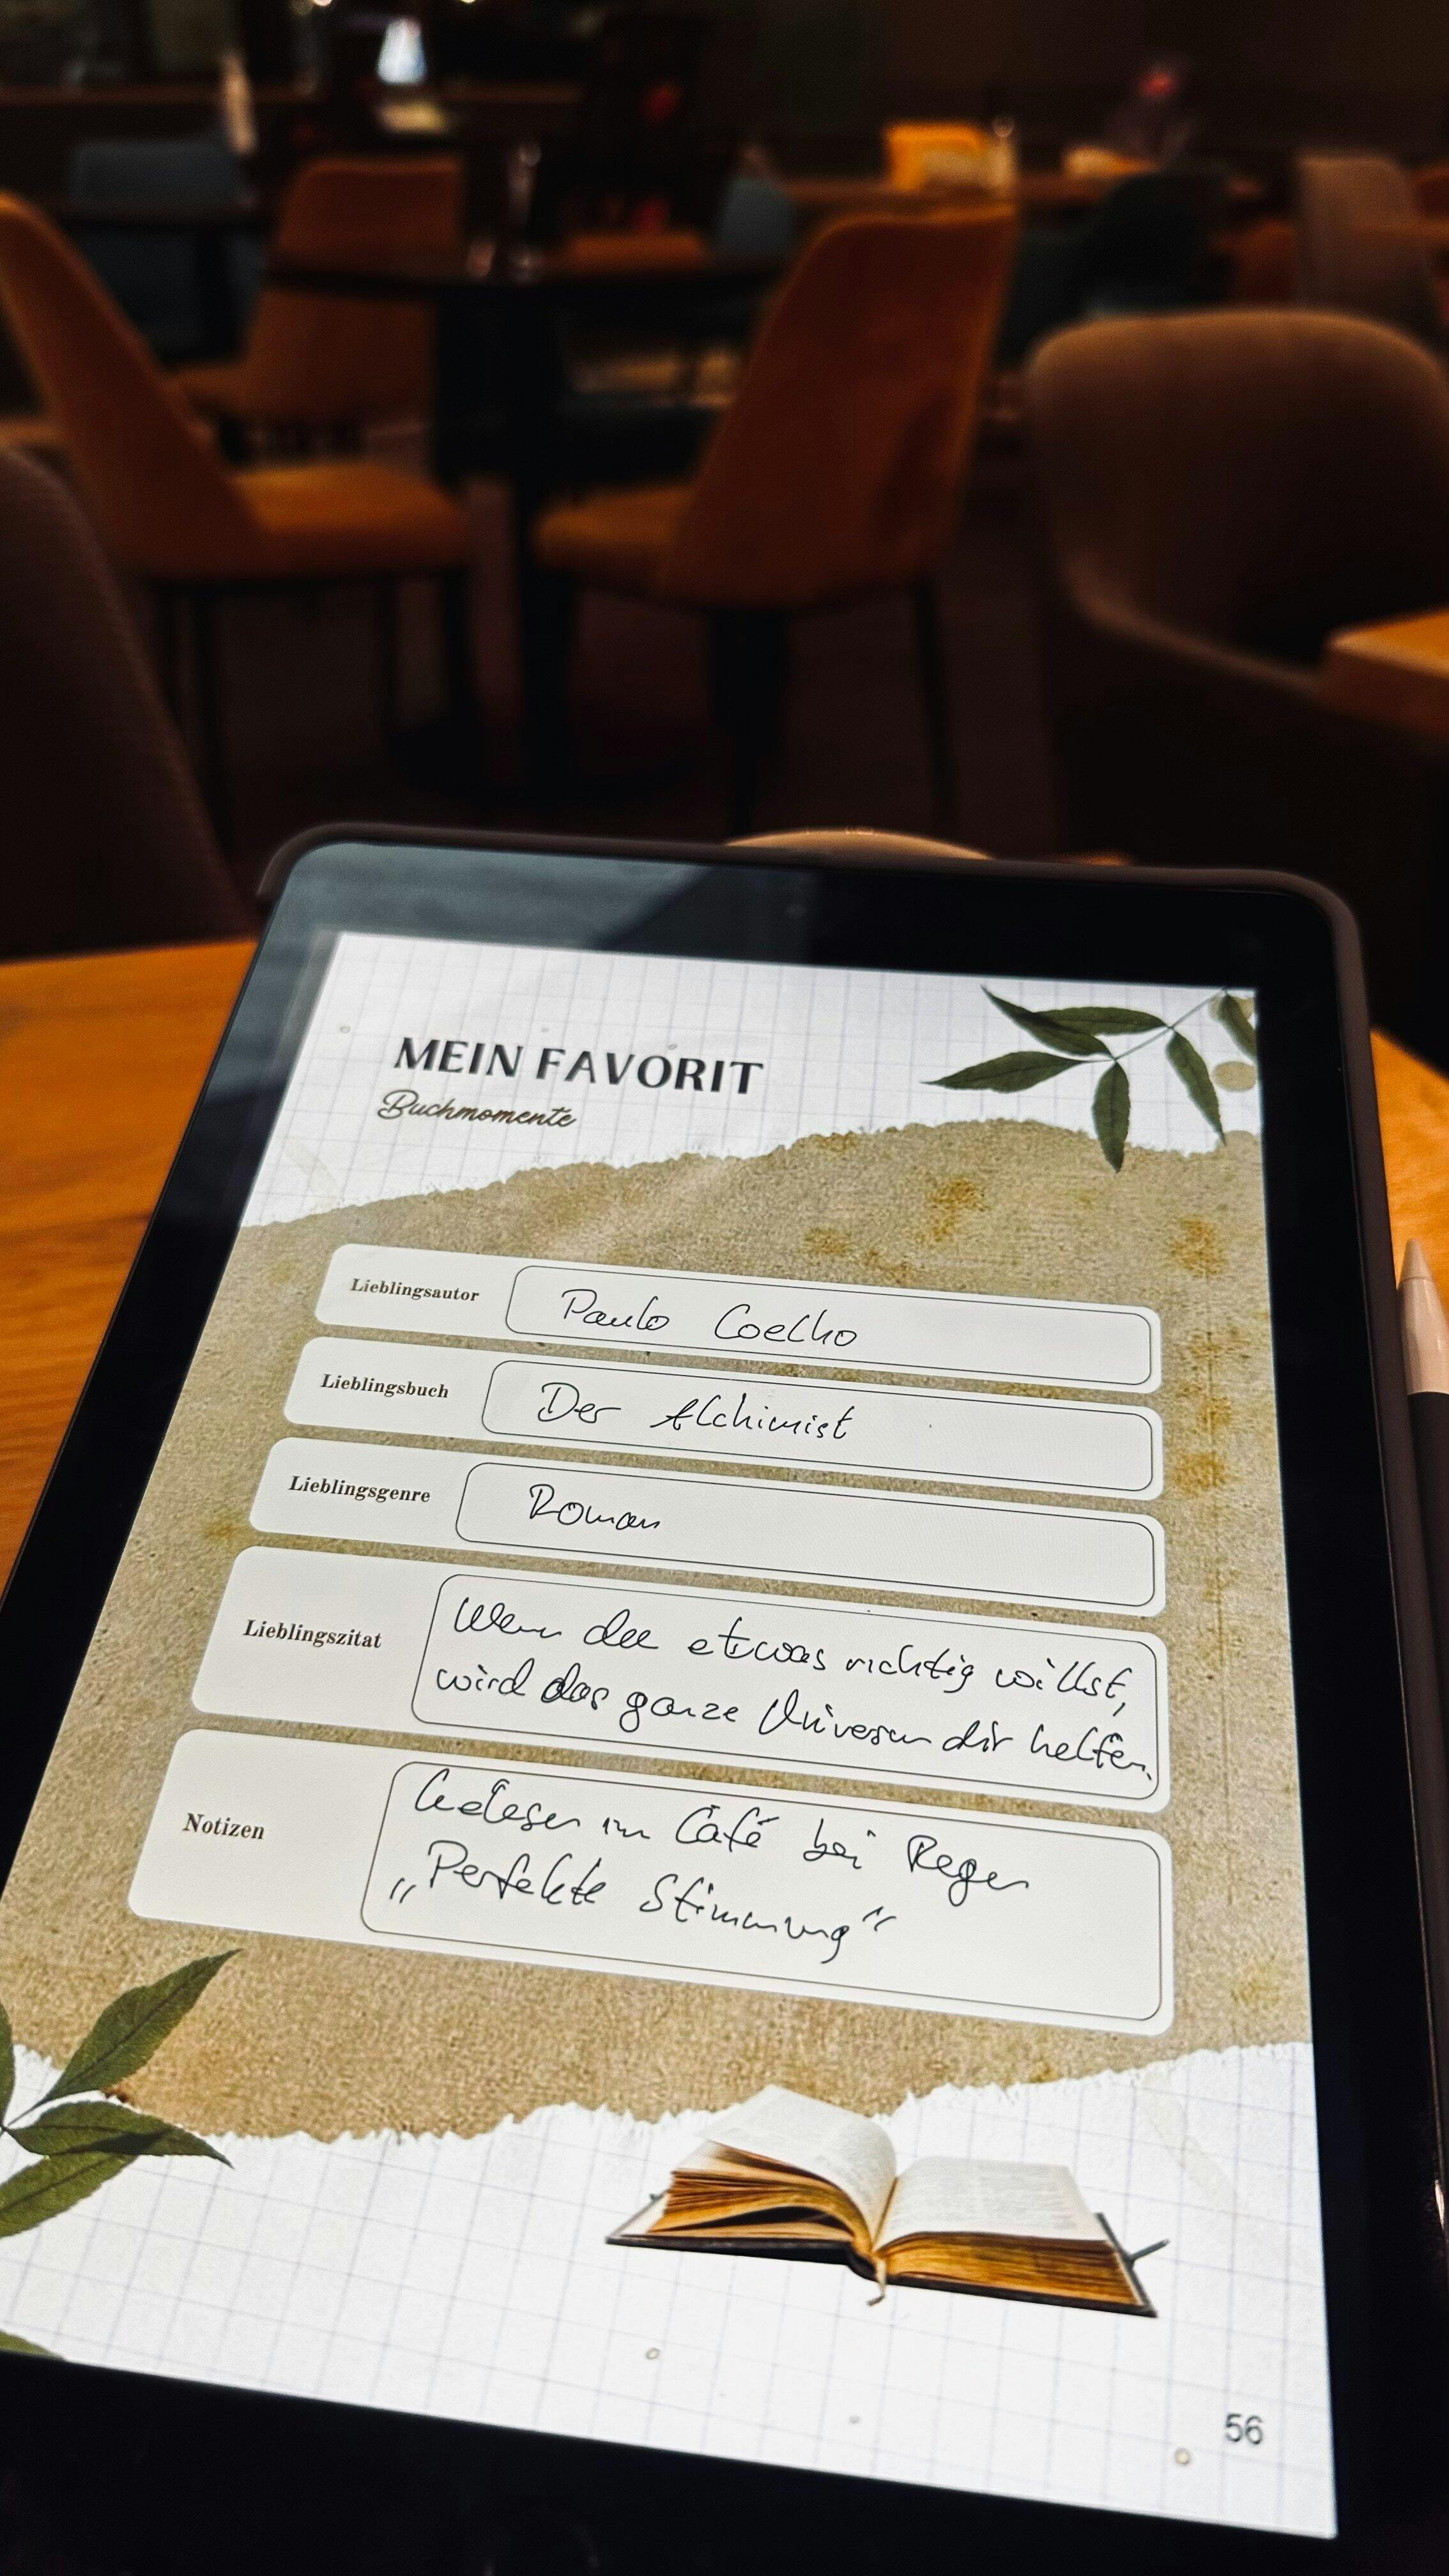 MEIN FAVORIT
Buchmomente
Lieblingsautor Paulo Coelho
Lieblingsbuch Der Alchimist
Lieblingsgenre Roman
Lieblingszitat Wenn du etwas richtig willst,
wird das ganze Universum dir helfen.
Notizen Gelesen im Café bei Regen
„Perfekte Stimmung“
56